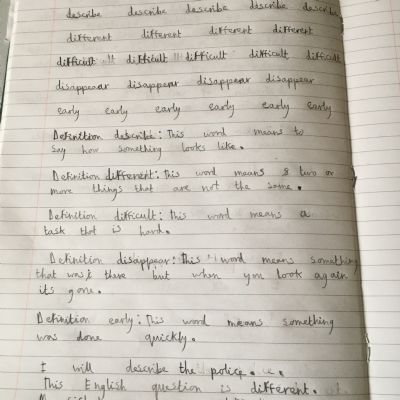 describe describe describe describe describe
different different different different
difficult difficult difficult difficult difficult
disappear disappear disappear disappear
early early early early early early
Definition describe: This word means to
say how something looks like.
Definition different: this word means two or
more things that are not the same.
Definition difficult: this word means a
task that is hard.
Definition disappear: This word means something
that was there but when you look again
its gone.
Definition early: This word means something
was done quickly.
I will describe the police.
This English question is different.